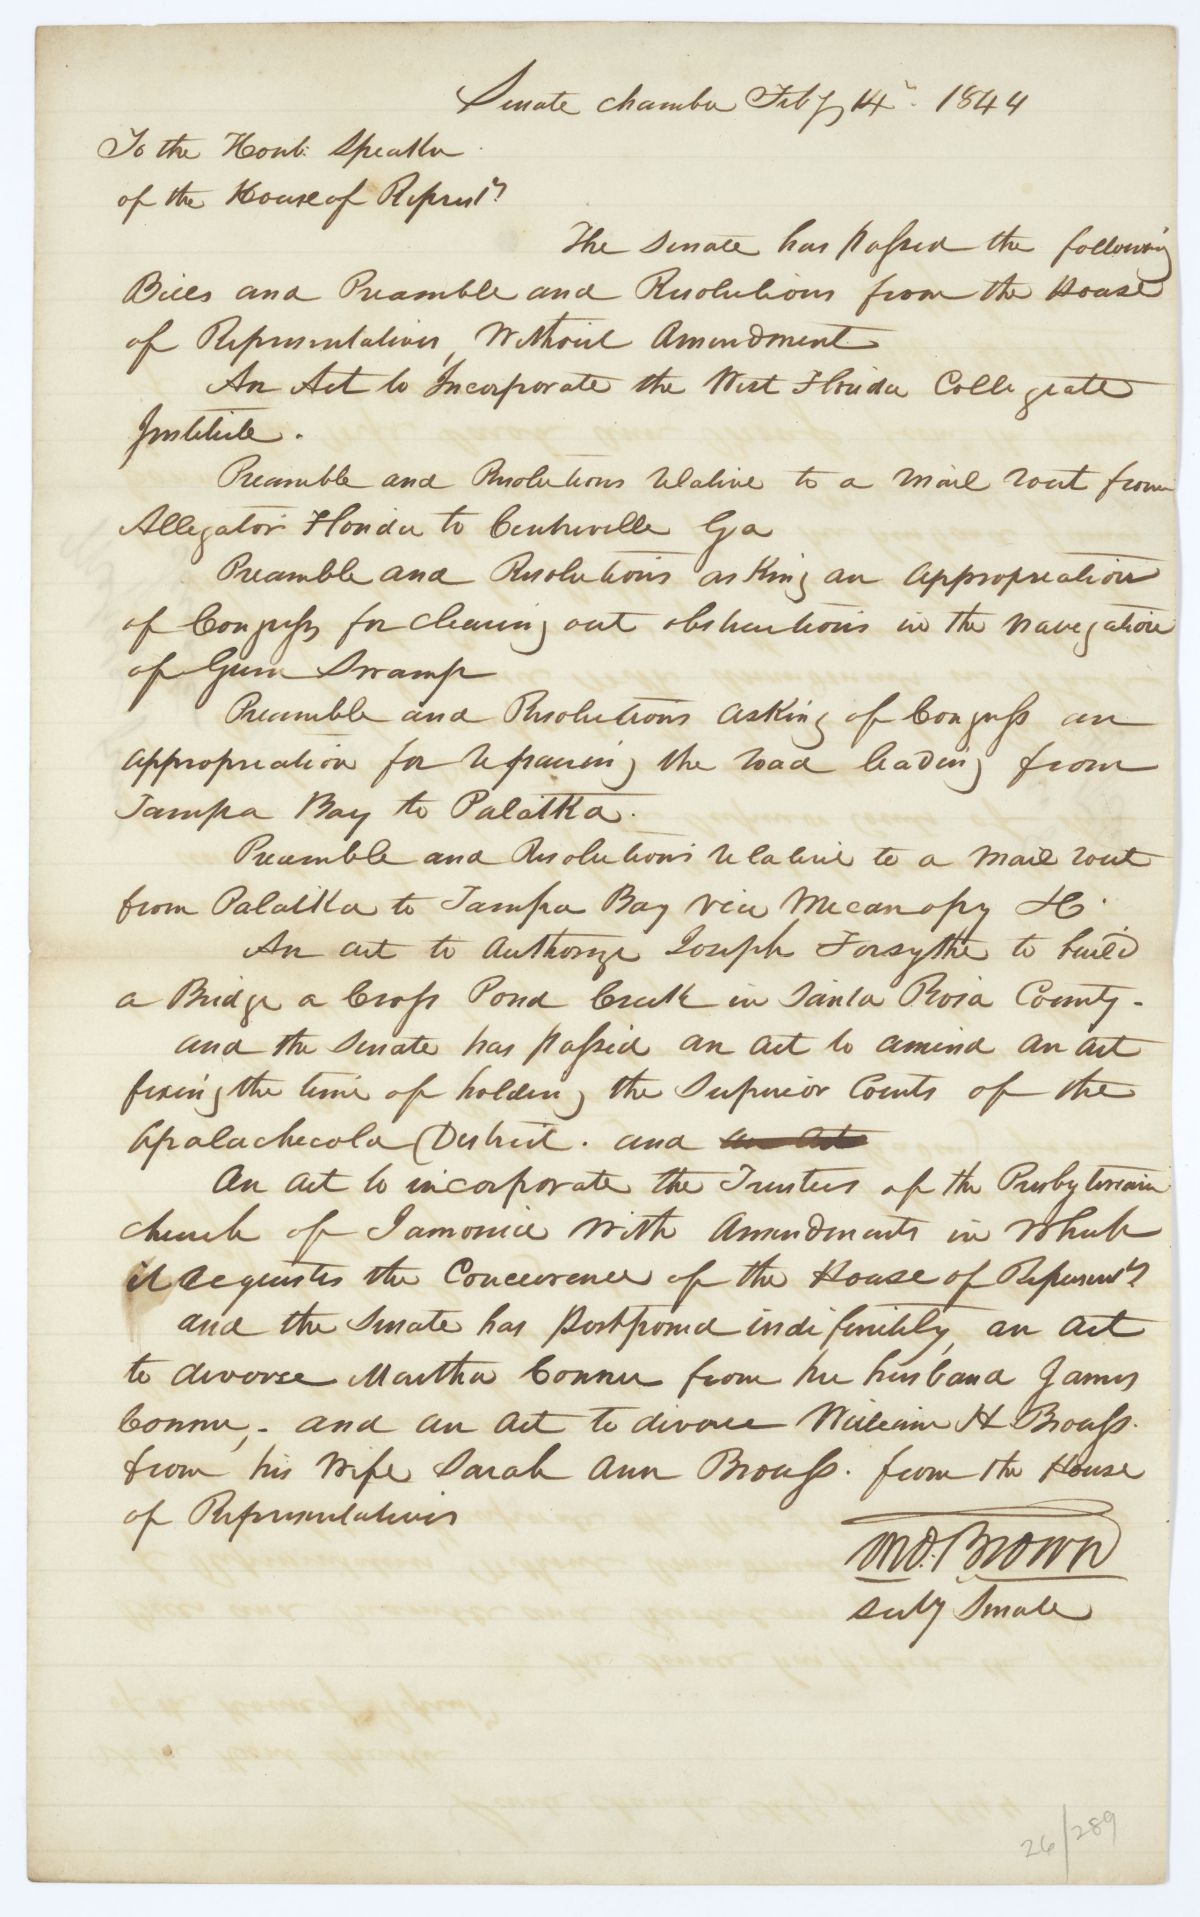 Senate chamber Feby 14th. 1844
To the Honb. Speaker
of the House of Represt's
The Senate has passed the following
Bills and Preamble and Resolutions from the House
of Representatives, Without Amendment
An Act to Incorporate the West Florida Collegiate
Institute.
Preamble and Resolutions relative to a mail rout from
Allegator Florida to Centreville Ga
Preamble and Resolutions asking an appropreation
of Congress for clearing out obstructions in the navegation
of Gum Swamp
Preamble and Resolutions asking of Congress an
appropreation for repairing the road leading from
Tampa Bay to Palatka.
Preamble and Resolutions relative to a mail rout
from Palatka to Tampa Bay via Mecanopy
An act to authorize Joseph Forsythe to build
a Bridge a Cross Pond Creek in Santa Rosa County -
and the Senate has passed an act to amend an act
fixing the time of holding the Superior Courts of the
Apalachecola District. and an act
An act to incorporate the Trustees of the Presbyterian
church of Iamonia with Amendments in Which
it requests the Concurrence of the House of Represent's
and the Senate has postponed indefinitely, an act
to divorce Martha Conner from her husband James
Conner, - and an act to divorce William H Bronss.
from his Wife Sarah Ann Bronss. from the House
of Representatives
Th. Brown
Secty Senate
26/289